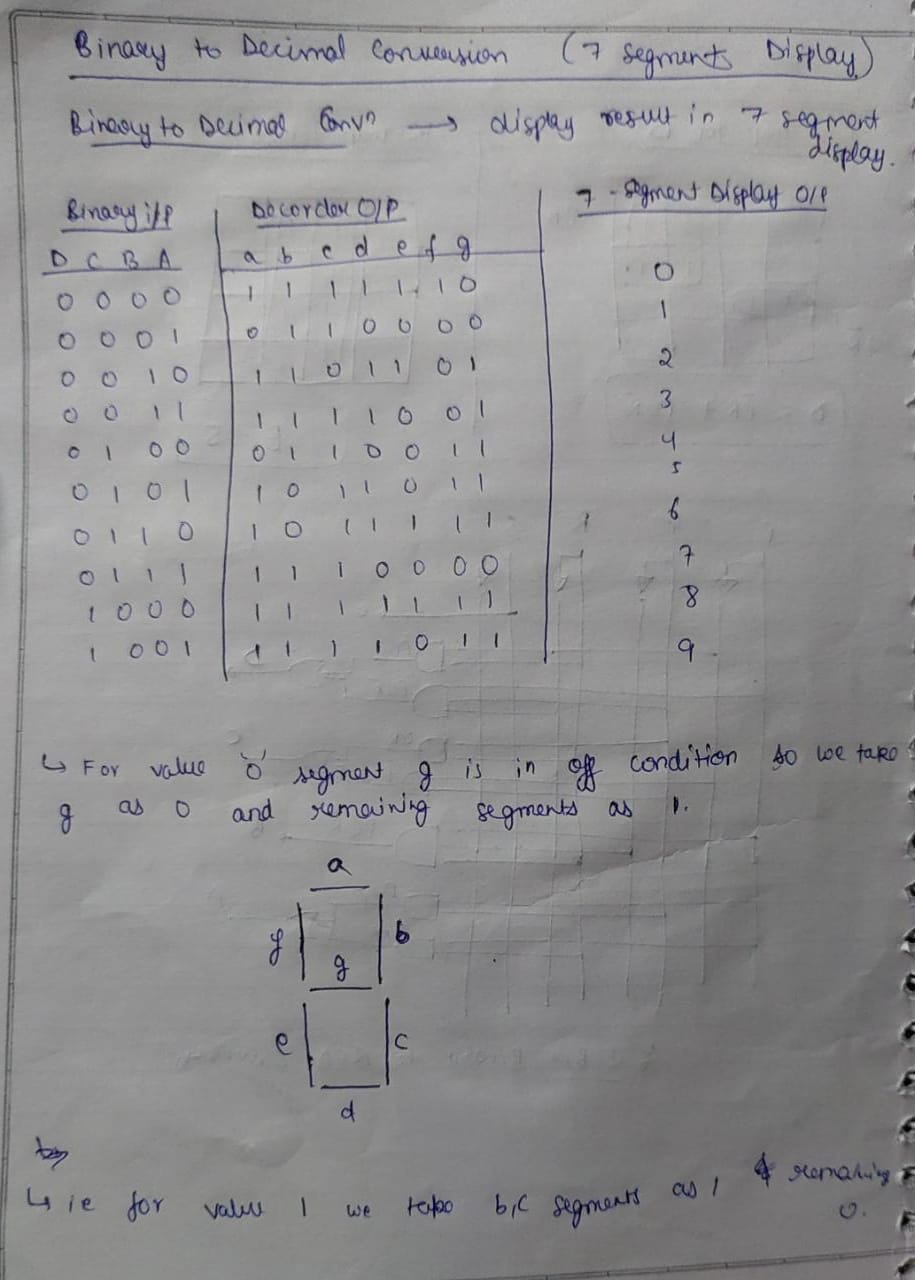 Binary to Decimal Conversion (7 segments Display)
Binary to Decimal Convn → display result in 7 segment
display.
Binary i/p Decorder O/P 7 - Segment Display O/P
D C B A a b c d e f g
0 0 0 0 1 1 1 1 1 1 0 0
0 0 0 1 0 1 1 0 0 0 0 1
0 0 1 0 1 1 0 1 1 0 1 2
0 0 1 1 1 1 1 1 0 0 1 3
0 1 0 0 0 1 1 0 0 1 1 4
0 1 0 1 1 0 1 1 0 1 1 5
0 1 1 0 1 0 1 1 1 1 1 6
0 1 1 1 1 1 1 0 0 0 0 7
1 0 0 0 1 1 1 1 1 1 1 8
1 0 0 1 1 1 1 1 0 1 1 9
↳ For value 0 segment g is in off condition so we take
g as 0 and remaining segments as 1.
a
f b
g
e c
d
↳ ie for value 1 we take b,c segments as 1 & remaining
0.